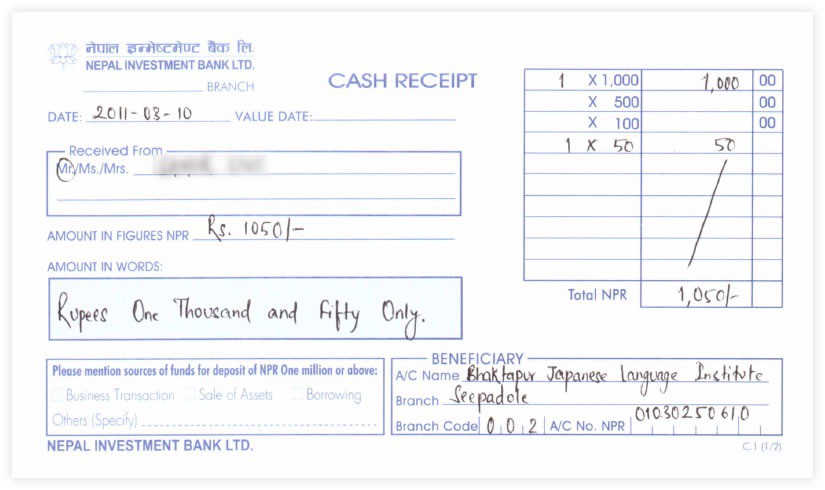 नेपाल इन्भेष्टमेण्ट बैंक लि.
NEPAL INVESTMENT BANK LTD.
BRANCH
CASH RECEIPT
DATE: 2011-03-10 VALUE DATE:
Received From
Mr./Ms./Mrs.
AMOUNT IN FIGURES NPR Rs. 1050/-
AMOUNT IN WORDS:
Rupees One Thousand and Fifty Only.
1 X 1,000 1,000 00
X 500 00
X 100 00
1 X 50 50
Total NPR 1,050/-
Please mention sources of funds for deposit of NPR One million or above:
Business Transaction Sale of Assets Borrowing
Others (Specify)
BENEFICIARY
A/C Name Bhaktapur Japanese Language Institute
Branch Seepadole
Branch Code 0 0 2 A/C No. NPR 01030250610
NEPAL INVESTMENT BANK LTD.
C.1 (1/2)